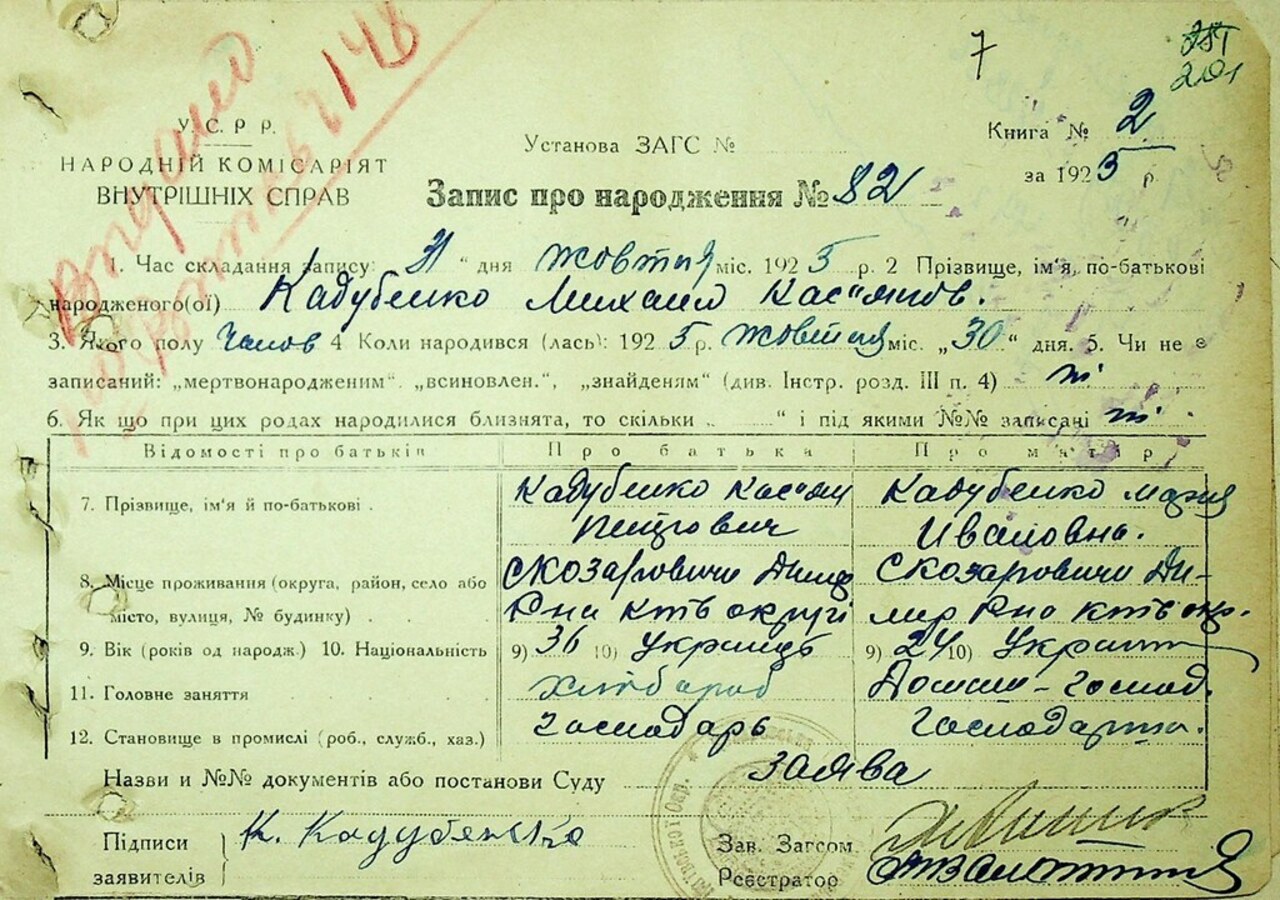 7
201
У. С. Р. Р.
НАРОДНІЙ КОМІСАРІЯТ
ВНУТРІШНІХ СПРАВ
Видано
148
Установа ЗАГС №
Книга № 2
за 1925 р.
Запис про народження № 82
1. Час складання запису: 31 " дня жовтня міс. 1925 р. 2 Прізвище, ім'я, по-батькові
народженого(ої) Кадубенко Михаил Кас'янов.
3. Якого полу Чолов 4 Коли народився (лась): 1925 р. Жовтня міс. „30" дня. 5. Чи не є
записаний: „мертвонародженим". „всиновлен.", „знайденям" (див. Інстр. розд. III п. 4) ні
6. Як що при цих родах народилися близнята, то скільки „ " і під якими №№ записані ні
Відомості про батьків Про батька Про матір
7. Прізвище, ім'я й по-батькові . Кадубенко Кас'ян Кадубенко Мария
Петрович Ивановна.
8. Місце проживання (округа, район, село або Скозаровичи Димер Скозаровичи Ди-
місто, вулиця, № будинку) . . Рна Ктв округі мир Рна Ктв окр.
9. Вік (років од народж.) 10. Національність 9) 36 10) Українць 9) 24 10) Украин
11. Головне заняття хлібороб Домаш-Господ.
12. Становище в промислі (роб., служб., хаз.) Господарь Господарка.
Назви и №№ документів або постанови Суду заява
Підписи
заявителів
К. Кадубенко
Зав. Загсом
Реєстратор